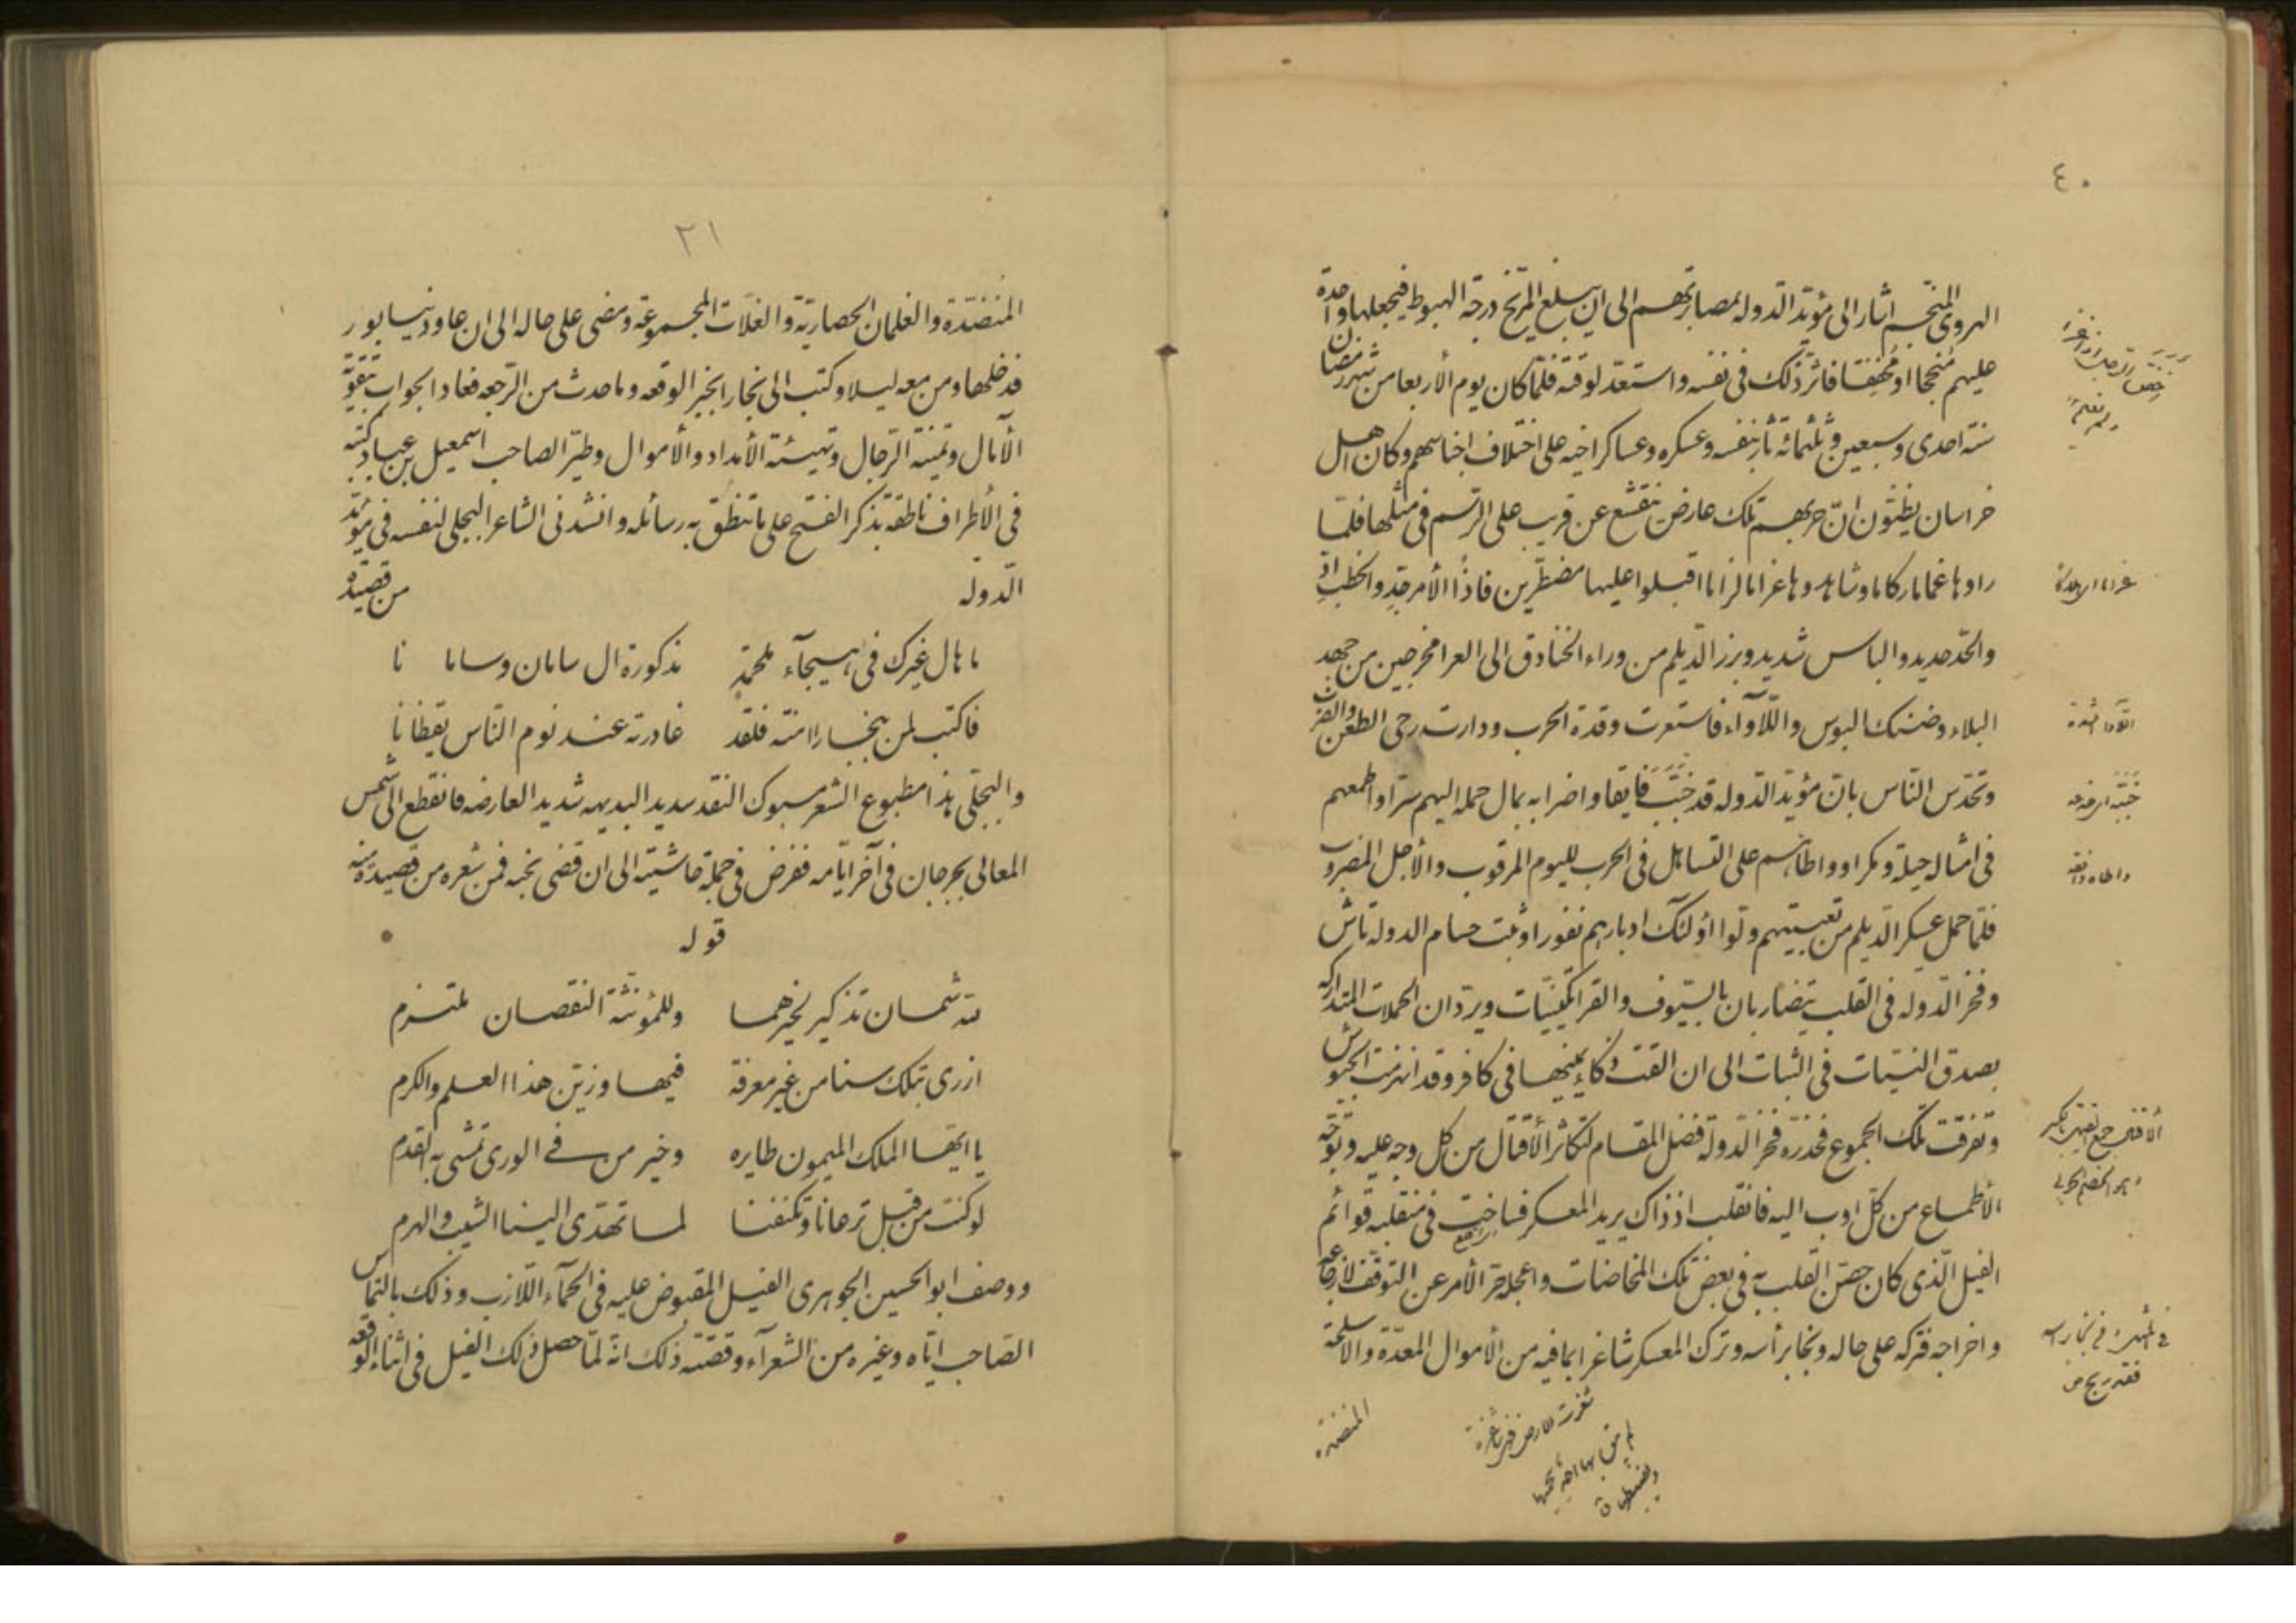 ٤٠
الهروى المنجّم اشار الى مؤيّد الدّوله بمصابرتهم الى ان يبلغ المرّيخ درجة الهبوط فيجعلها واحدة
عليهم مُنجحا او مُخفِقا فاثّر ذلك فى نفسه واستعدّ لوقته فلمّا كان يوم الأربعا من شهر رمضان
سنة احدى وسبعين وثلثمائة ثار بنفسه وعسكره وعساكر اخيه على اختلاف اجناسهم وكان اهل
خراسان يظنّون انّ حربهم تلك عارض يتقشّع عن قريب على الرّسم فى مثلها فلمّا
راوها غماما ركاما وشاهدوها غراما لزاما اقبلوا عليها مضطرّين فاذًا الأمر جدٍ والخطب ادّ
والحدّ حديد والباس شديد وبرز الدّيلم من وراء الخنادق الى العرا محرجين من جهد
البلاء وضنك البوس واللّأواء فاستعرت وقدة الحرب ودارت رحى الطعن والضرب
وتحدّس النّاس بانّ مؤيّد الدّوله قد خَبّبَ فايقا واضرابه بمال حمله اليهم سرّا واطمعهم
فى امثاله حيلة ومكرا وواطاهم على التساهل فى الحرب لليوم المرقوب والأجل المضروب
فلمّا حمل عسكر الدّيلم من تعبيتهم ولّوا أولئك ادبارهم نفورا وثبت حسام الدوله تاش
وفخر الدّوله فى القلب يتضاربان بالسّيوف والقراتكينيّات ويردّان الحملات المتداركه
بصدق النّيّات فى الثبات الى ان القت ذكاء يمينها فى كافر وقد انهزمت الجيوش
وتفرّقت تلك الجموع فحذّره فخر الدّولة فضل المقام لتكاثر الأقتال من كل وجه عليه وتوجّه
الأطماع من كلّ اوب اليه فانقلب اذ ذاك يريد المعسكر فساخت فى منقلبه قوائم
الفيل الّذى كان حصّن القلب به فى بعض تلك المخاضات واعجله حزّ الأمر عن التوقّف لازعاجه
واخراجه فتركه على حاله ونجا برأسه وترك المعسكر شاغرا بما فيه من الأموال المعدّة والاسلحة
المنضدة
اللأواء الشدة
خببه اى خدعه
واطاه وافقه
٢١
المنضّدة والغلمان الحصاريّة والغلّات المجموعة ومضى على حاله الى ان عاود نيسابور
فدخلها ومن معه ليلا وكتب الى بخارا بخبر الوقعه وما حدث من الرّجعه فعاد الجواب بتقويّة
الآمال وتمنية الرّجال وتهيئة الأمداد والأموال وطيّر الصاحب اسمعيل بن عباد كتبه
فى الأطراف ناطقة بذكر الفتح على ما تنطّق به رسائله وانشدنى الشاعر البجلى لنفسه فى مؤيّد
الدّوله من قصيدة
ما بال غيرك فى هيجآء ملحمة مذكورة ال سامان وساما نا
فاكتب لمن ببخارا امنة فلقد غادرته عند نوم النّاس يقظانا
والبجلّى هذا مطبوع الشعر مسبوك النقد سديد البديهه شديد العارضه فانقطع الى شمس
المعالى بجرجان فى آخر ايّامه ففرض فى جملة حاشيته الى ان قضى نحبه فمن شعره من قصيدة فيه
قوله
لله شمسان تذكير لخيرهما وللمؤنّثة النقصان ملتزم
ازرى بتلك سنا من غير معرفة فيها وزيّن هذا العلم والكرم
يا ايّها الملك الميمون طايره وخير من فى الورى تمشى به القدم
لو كنت من قبل ترعانا وتكنفنا لما تهدّى الينا الشيب والهرم
ووصف ابو الحسين الجوهرى الفيل المقبوض عليه فى الحمأء اللّازب وذلك بالتماس
الصّاحب ايّاه وغيره من الشعرآء وقصّة ذلك انّه لمّا حصل ذلك الفيل فى اثناء الوقعه